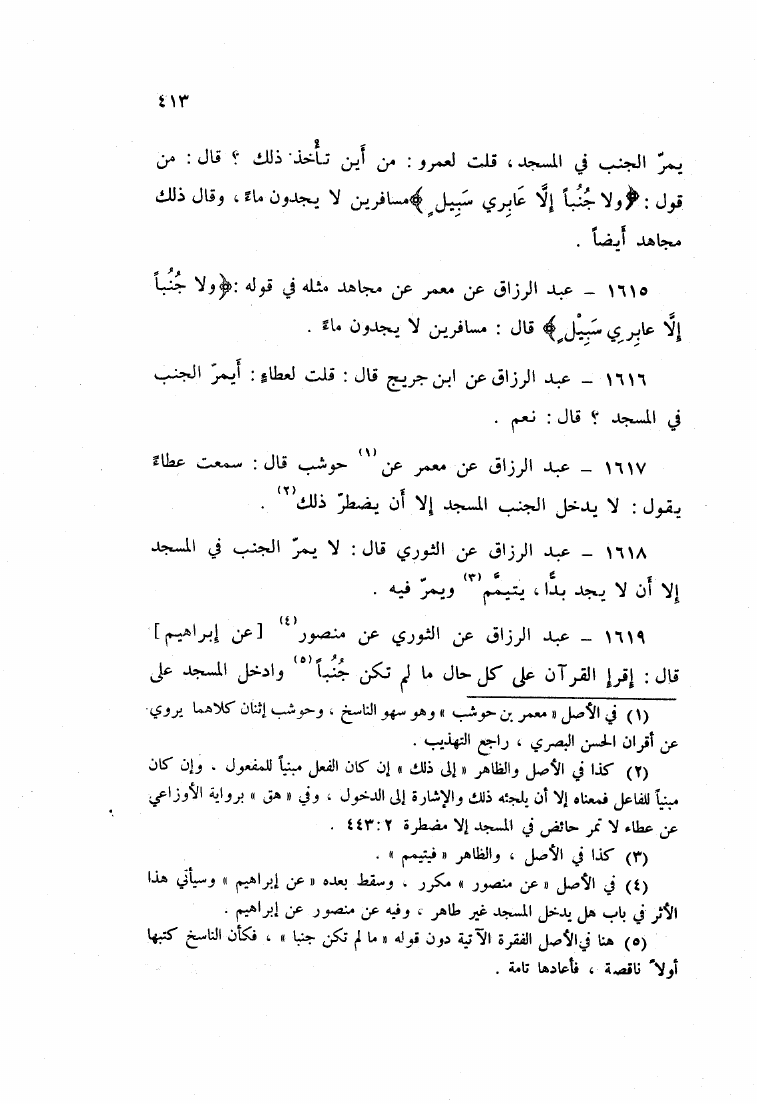 ٤١٣
يمرّ الجنب في المسجد، قلت لعمرو: من أين تأْخذ ذلك ؟ قال: من
قول: ﴿ولا جُنُباً إِلَّا عَابِرِي سَبِيلٍ﴾ مسافرين لا يجدون ماءً، وقال ذلك
مجاهد أيضاً .
١٦١٥ - عبد الرزاق عن معمر عن مجاهد مثله في قوله :﴿ولا جُنُباً
إِلَّا عابِرِي سَبِيْلٍ﴾ قال : مسافرين لا يجدون ماءً .
١٦١٦ - عبد الرزاق عن ابن جريج قال: قلت لعطاءٍ: أَيمرّ الجنب
في المسجد ؟ قال: نعم .
١٦١٧ - عبد الرزاق عن معمر عن (١) حوشب قال: سمعت عطاءً
يقول: لا يدخل الجنب المسجد إلا أن يضطرّ ذلك(٢) .
١٦١٨ - عبد الرزاق عن الثوري قال: لا يمرّ الجنب في المسجد
إلا أن لا يجد بدًّا، يتيمَّم(٣) ويمرّ فيه .
١٦١٩ - عبد الرزاق عن الثوري عن منصور(٤) [عن إبراهيم]
قال: إقرإ القرآن على كل حال ما لم تكن جُنُباً(٥) وادخل المسجد على
(١) في الأصل «معمر بن حوشب» وهو سهو الناسخ، وحوشب إثنان كلاهما يروي
عن أقران الحسن البصري ، راجع التهذيب .
(٢) كذا في الأصل والظاهر «إلى ذلك» إن كان الفعل مبنياً للمفعول . وإن كان
مبنياً للفاعل فمعناه إلا أن يلجئه ذلك والإشارة إلى الدخول ، وفي «هق» برواية الأوزاعي
عن عطاء لا تمر حائض في المسجد إلا مضطرة ٤٤٣:٢ .
(٣) كذا في الأصل ، والظاهر «فيتيمم» .
(٤) في الأصل «عن منصور» مكرر . وسقط بعده «عن إبراهيم» وسيأتي هذا
الأثر في باب هل يدخل المسجد غير طاهر ، وفيه عن منصور عن إبراهيم .
(٥) هنا في الأصل الفقرة الآتية دون قوله «ما لم تكن جنبا» ، فكأن الناسخ كتبها
أولاً ناقصة ، فأعادها تامة .